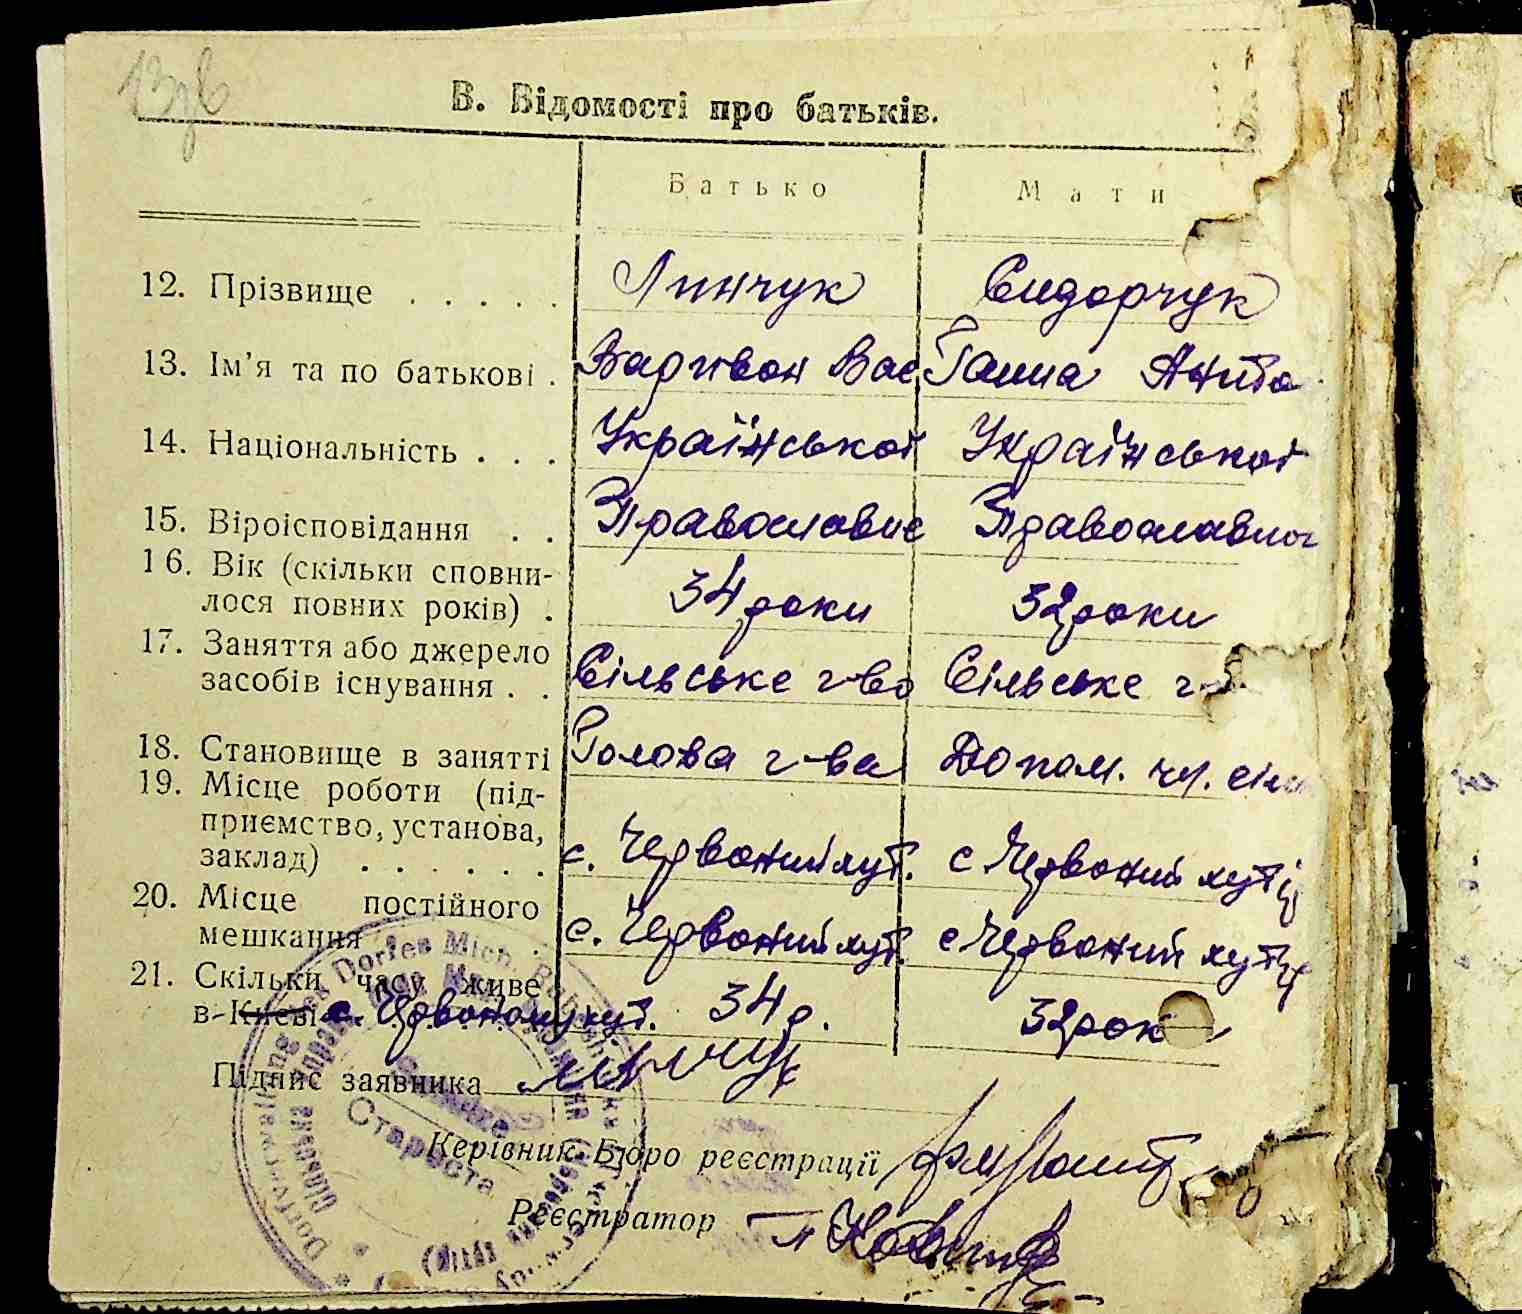 В. Відомості про батьків.
Батько Мати
12. Прізвище . . . . . Линчук Сидорчук
13. Ім'я та по батькові . Варивон Вас Ганна Анто
14. Національність . . . Української Української
15. Віроісповідання . . Православне Православної
16. Вік (скільки сповни-
лося повних років) . 34 роки 32 роки
17. Заняття або джерело
засобів існування . . Сільське г-во Сільське г-
18. Становище в занятті Голова г-ва Допом. чл. сім
19. Місце роботи (під-
приємство, установа,
заклад) . . . . . . с. Червоний хут. с Червоний хутір
20. Місце постійного
мешкання с. Червоний хут. с Червоний хутір
21. Скільки часу живе
в Києві с. Червоному хут. 34 р. 32 рок
Підпис заявника
Керівник Бюро реєстрації
Реєстратор
Староста